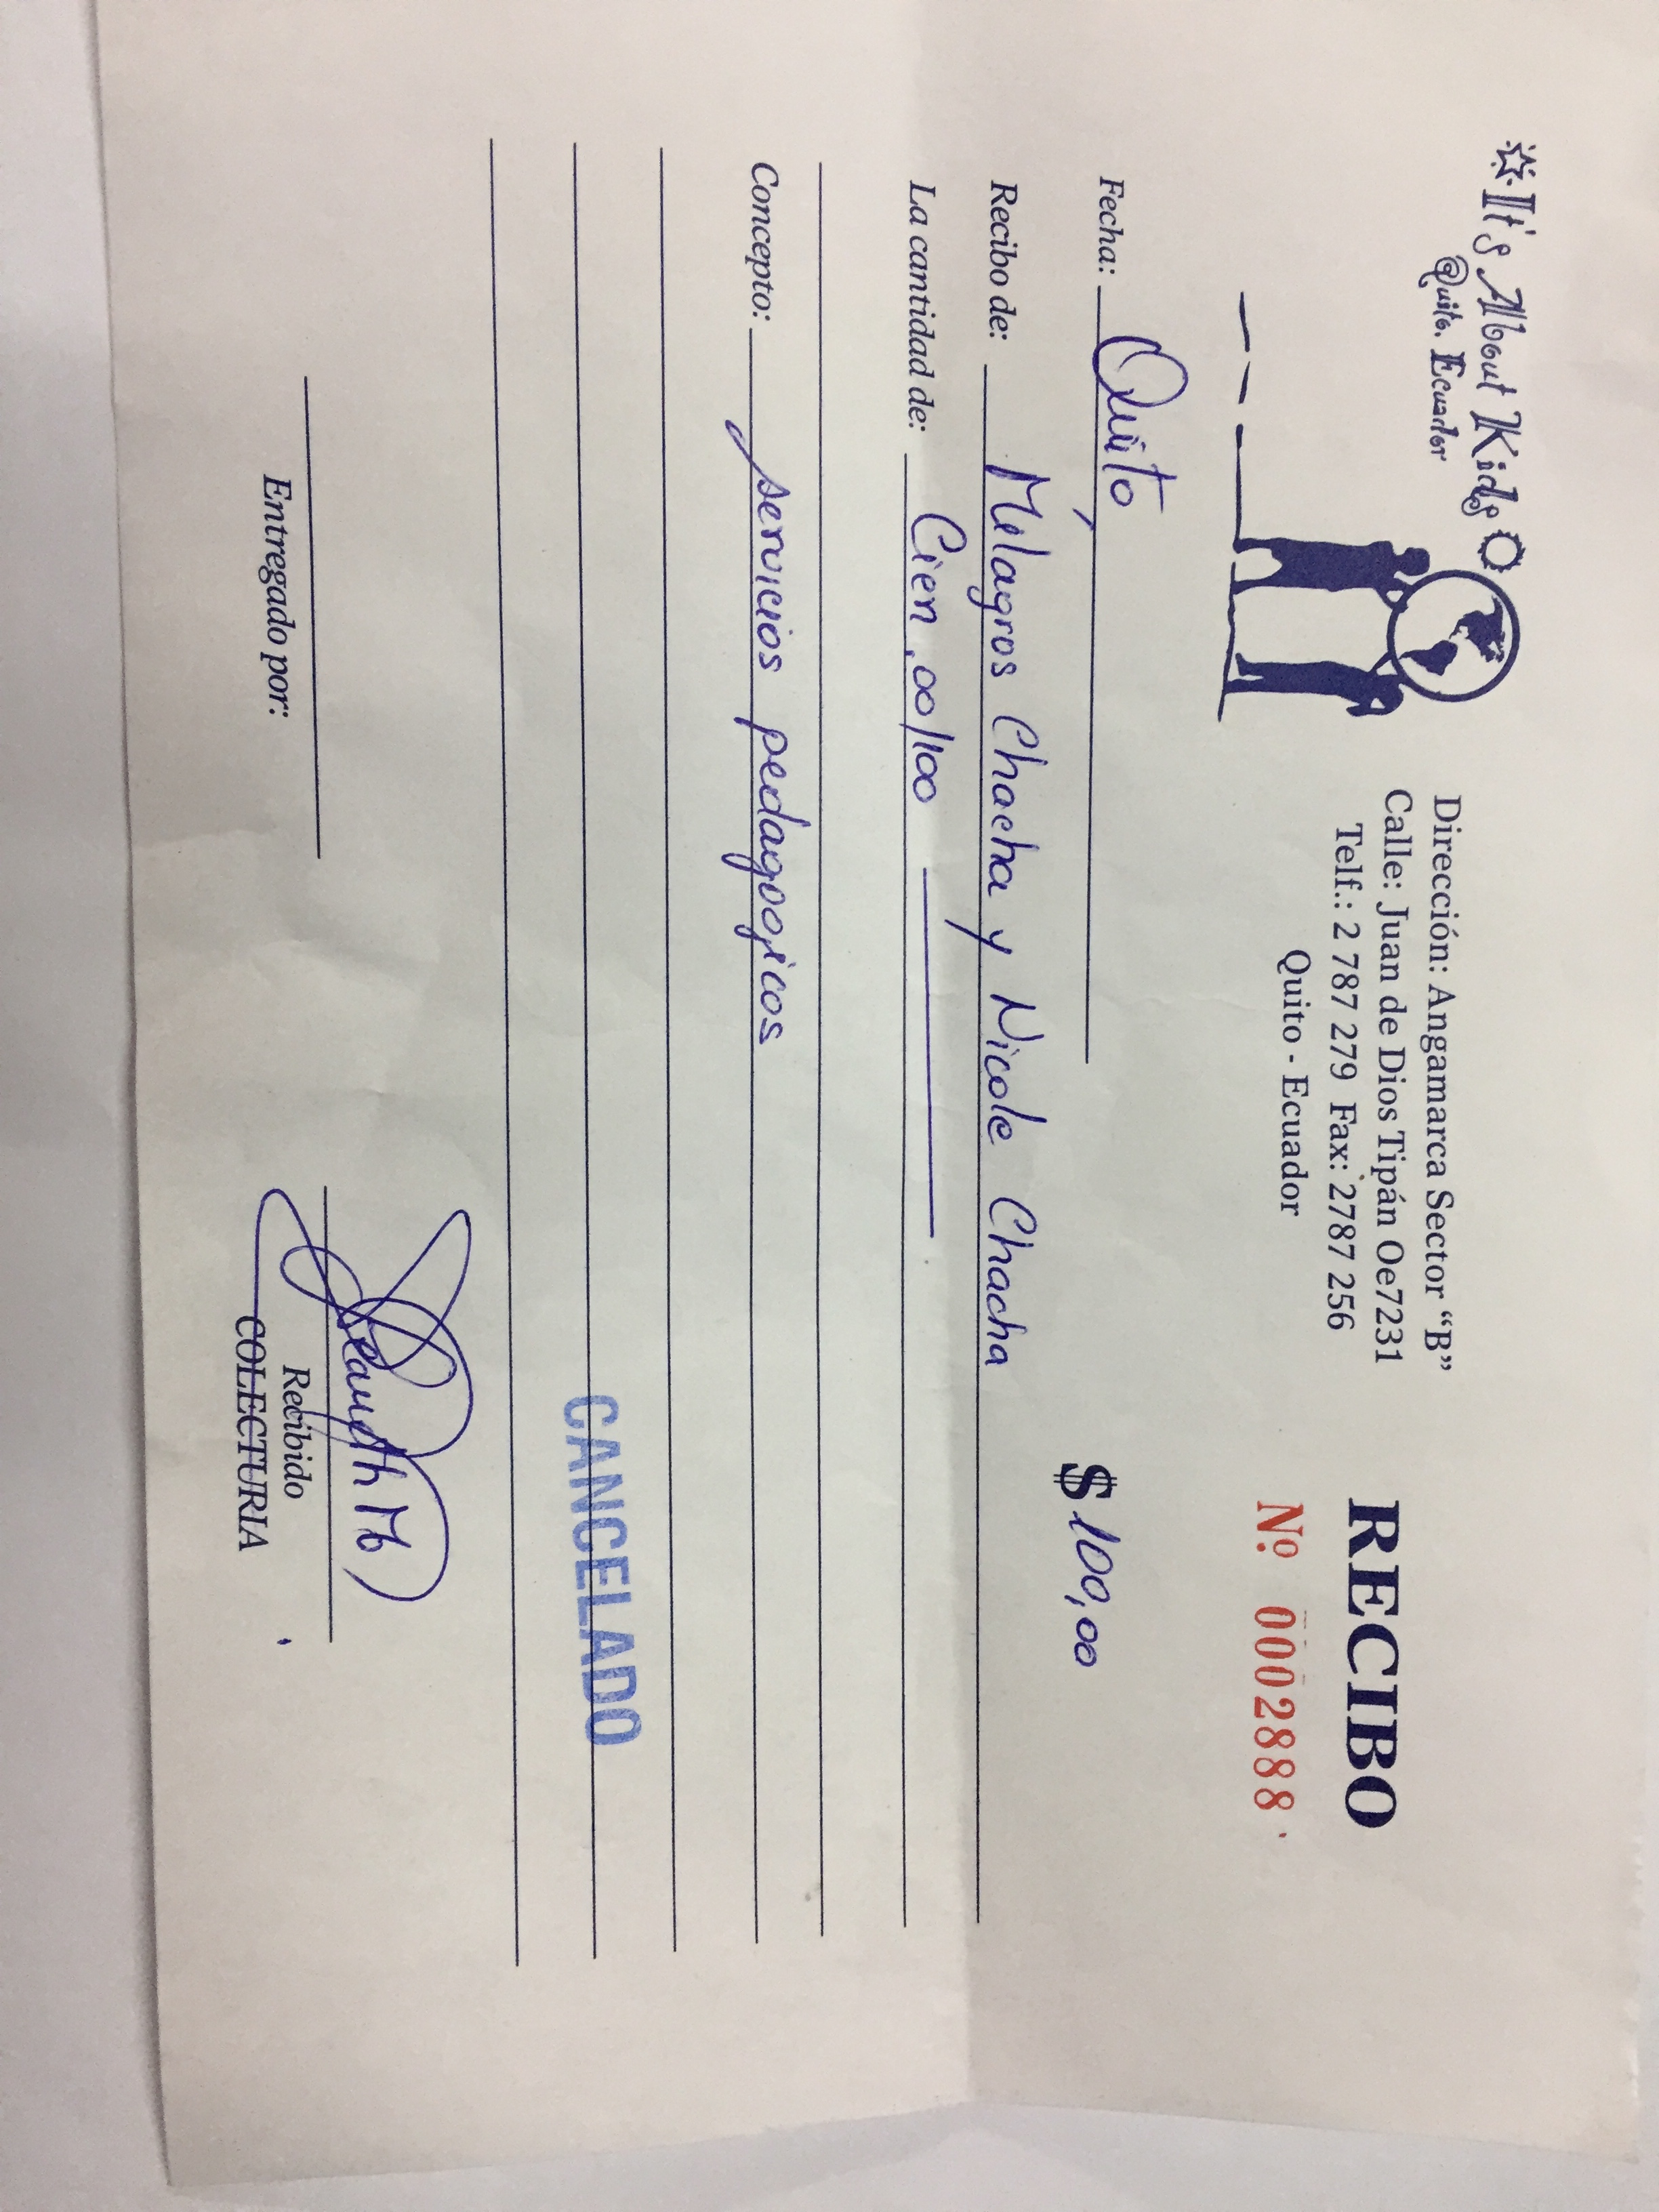 It's About Kids
Quito. Ecuador
Dirección: Angamarca Sector “B”
Calle: Juan de Dios Tipán Oe7231
Telf.: 2 787 279 Fax: 2787 256
Quito - Ecuador
RECIBO
Nº 0002888
Fecha: Quito,
$ 100,00
Recibo de: Milagros Chacha y Nicole Chacha
La cantidad de: Cien, 00/100
Concepto: servicios pedagogicos
CANCELADO
Entregado por:
Recibido
COLECTURIA